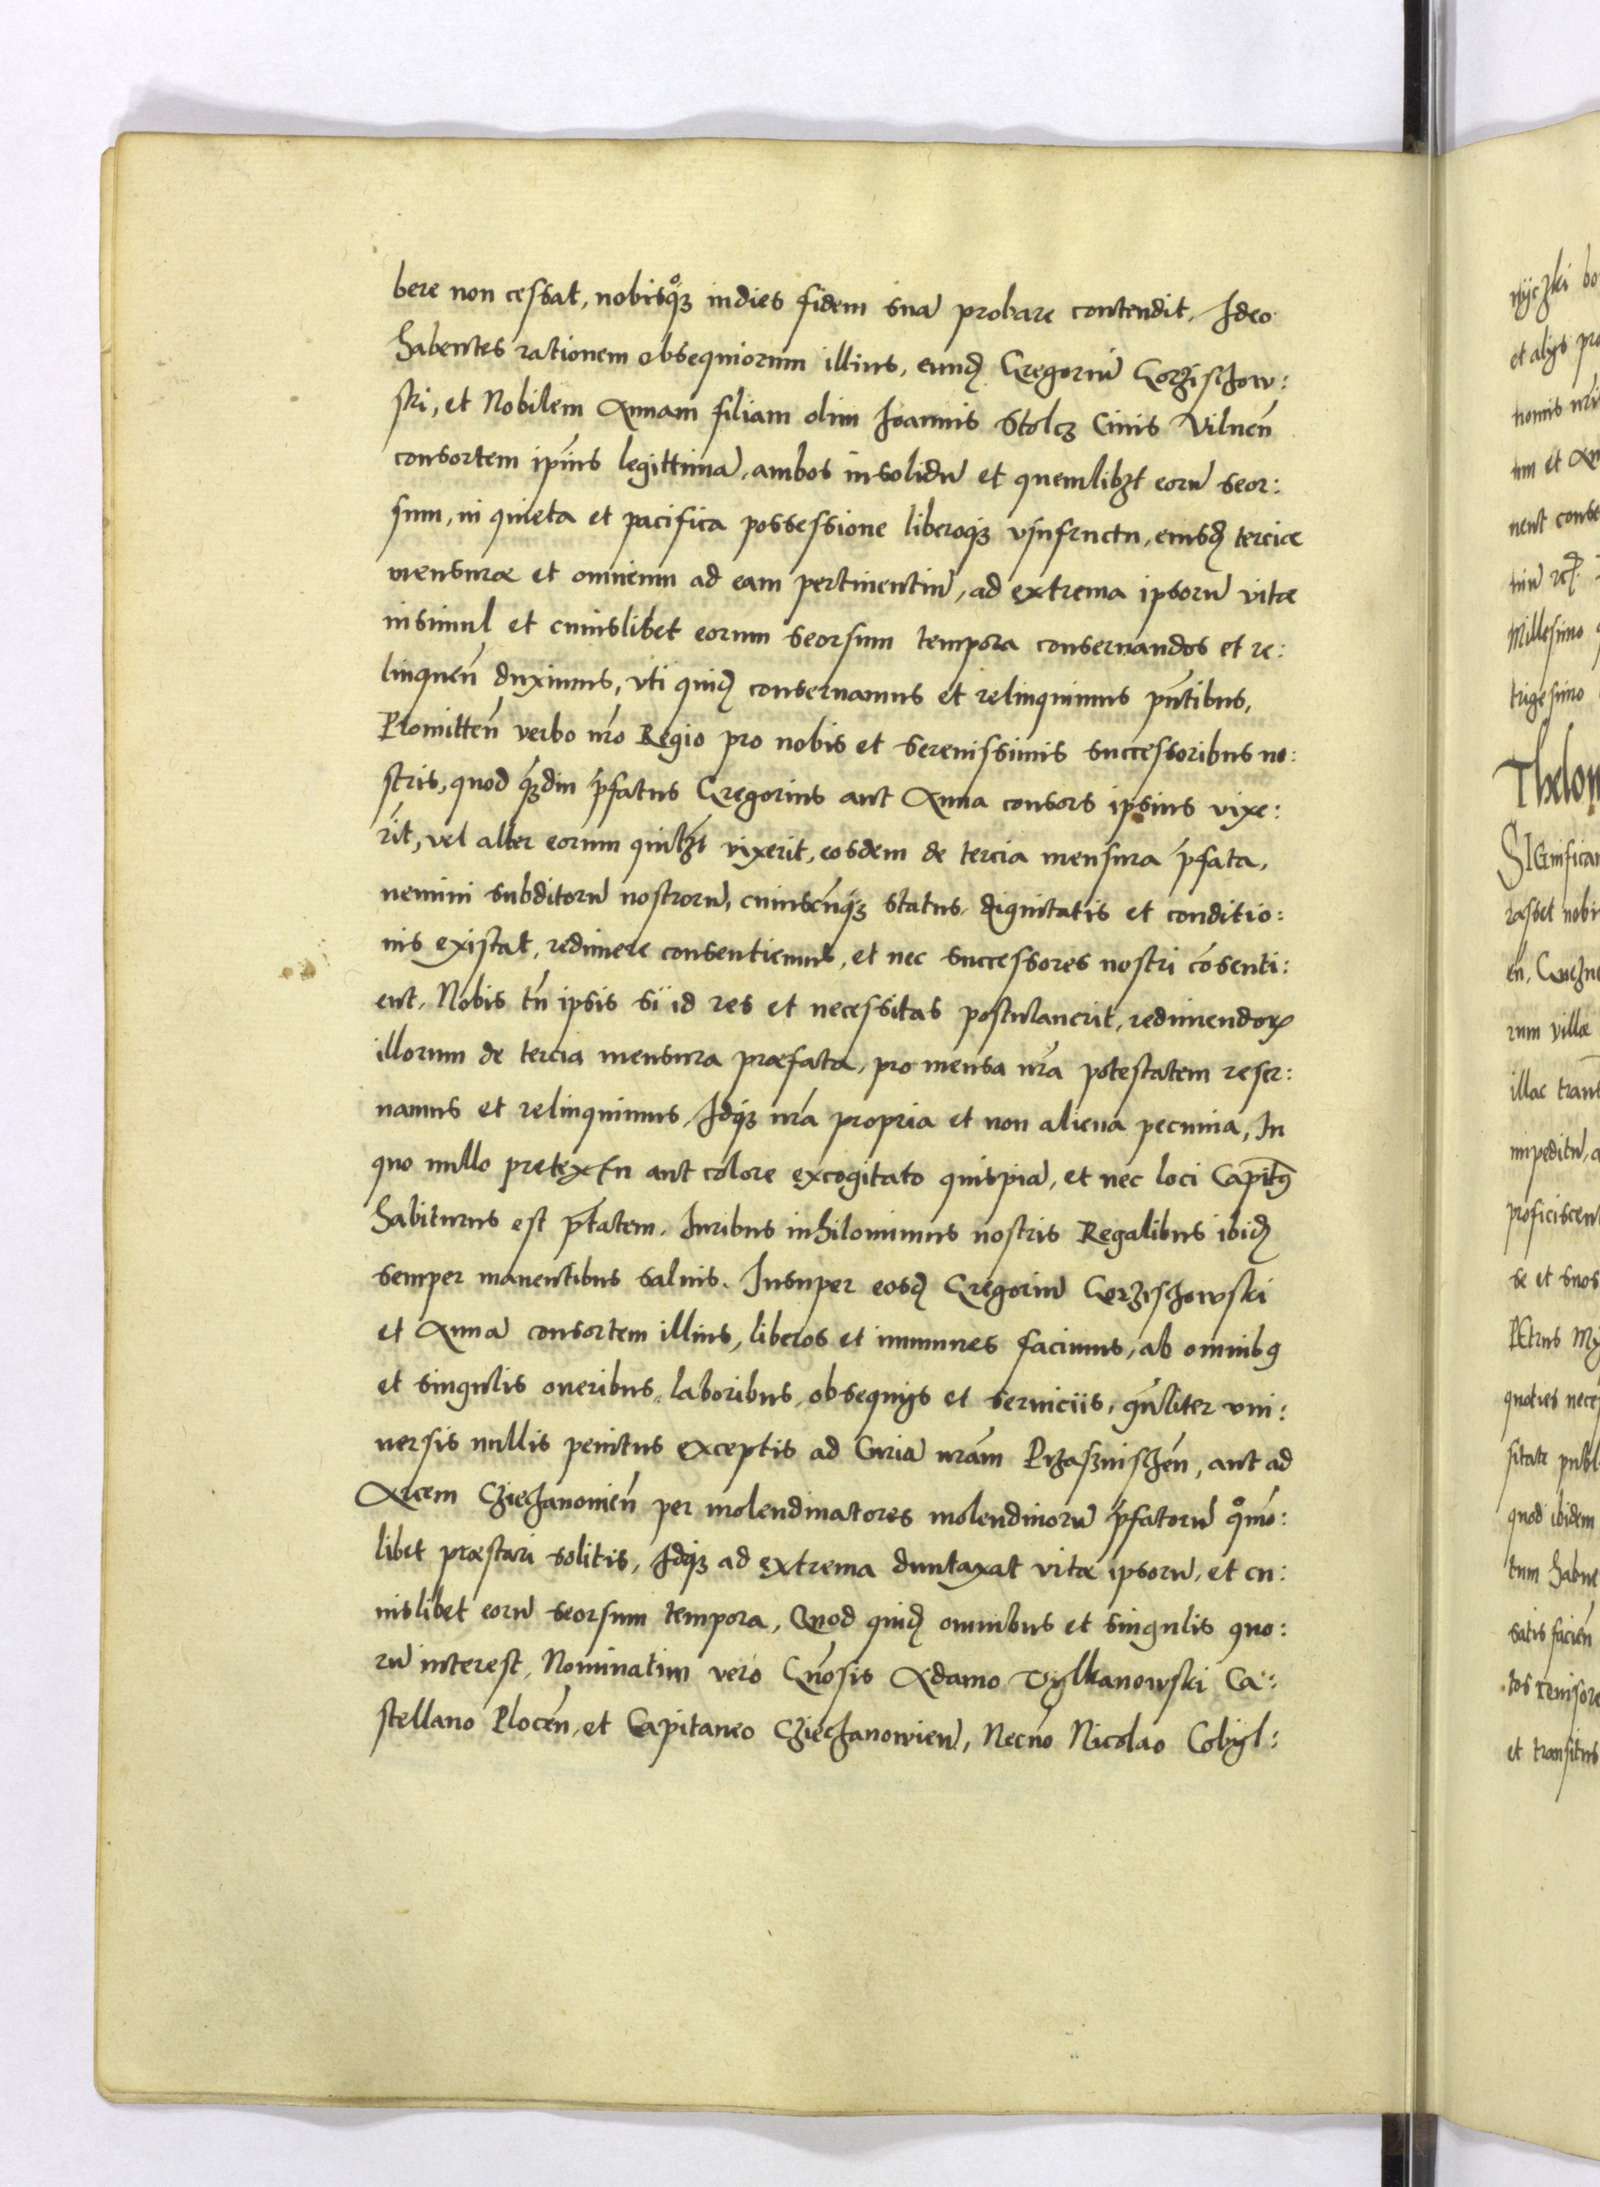 bere non cessat, nobisqꝫ indies fidem suā probare contendit. Ideo
habentes rationem obsequiorum illius, eund Gregoriū Gorzischow:
ski, et Nobilem Annam filiam olim Ioannis Stolcz Civis Vilnen̄
consortem ip̄ius legittimā, ambos insolidū et quemlibꝫt eorū seor:
sum, in quieta et pacifica possessione liberoqꝫ vsufructu, eiusd terciæ
mensuræ et omnium ad eam pertinentiū, ad extrema ipsorū vitæ
insimul et cuiuslibet eorum seorsum tempora conseruandos et re:
linquen̄ duximus, vti quid conseruamus et relinquimus pn̄tibus,
Promitten̄ verbo nr̄o Regio pro nobis et serenissimis successoribus no:
stris, quod qꝫdiu p̄fatus Gregorius aut Anna consors ipsius vixe:
rit, vel alter eorum quilꝫt vixerit, eosdem de tercia mensura p̄fata,
nemini subditorū nostrorū, cuiuscunqꝫ status dignitatis et conditio:
nis existat, redimere consentiemus, et nec successores nostri cōsenti:
ent. Nobis tn̄ ipsis si id res et necessitas postulauerit, redimendoꝝ
illorum de tercia mensura præfata, pro mensa nr̄a potestatem reser:
uamus et relinquimus. Idqꝫ nr̄a propria et non aliena pecunia, In
quo nullo pretextu aut colore excogitato quispiā, et nec loci Capitꝰ
habiturus est p̄tatem. Iuribus inhilominus nostris Regalibus ibid
semper manentibus saluis. Insuper eosd Gregoriū Gorzischowski
et Annā consortem illius, liberos et immunes facimus, ab omnibꝰ
et singulis oneribus, laboribus, obsequijs et seruiciis, qn̄liter vni:
uersis nullis penitus exceptis ad Curiā nrām Przasznischen̄, aut ad
Arcem Cziechanouien̄ per molendinatores molendinorū p̄fatorū qͦmō:
libet præstari solitis, Idqꝫ ad extrema duntaxat vitæ ipsorū, et cu:
iuslibet eorū seorsum tempora. Quod quid omnibus et singulis quo:
rū interest, Nominatim vero Gn̄osis Adamo Vylkanowski Ca:
stellano Plocen̄, et Capitaneo Cziechanowien̄, Necno Nicolao Cobyl:
nyczki
et alijs
nomis nr̄i
um et
nent
Millesimo
trigesimo
SIGnifica
rasset
rum villæ
illac
impeditū
proficiscen
se et suos
PEtrus
quoties
sitate publ
quod ibidem
tum habue
satisfacien̄
et transitus